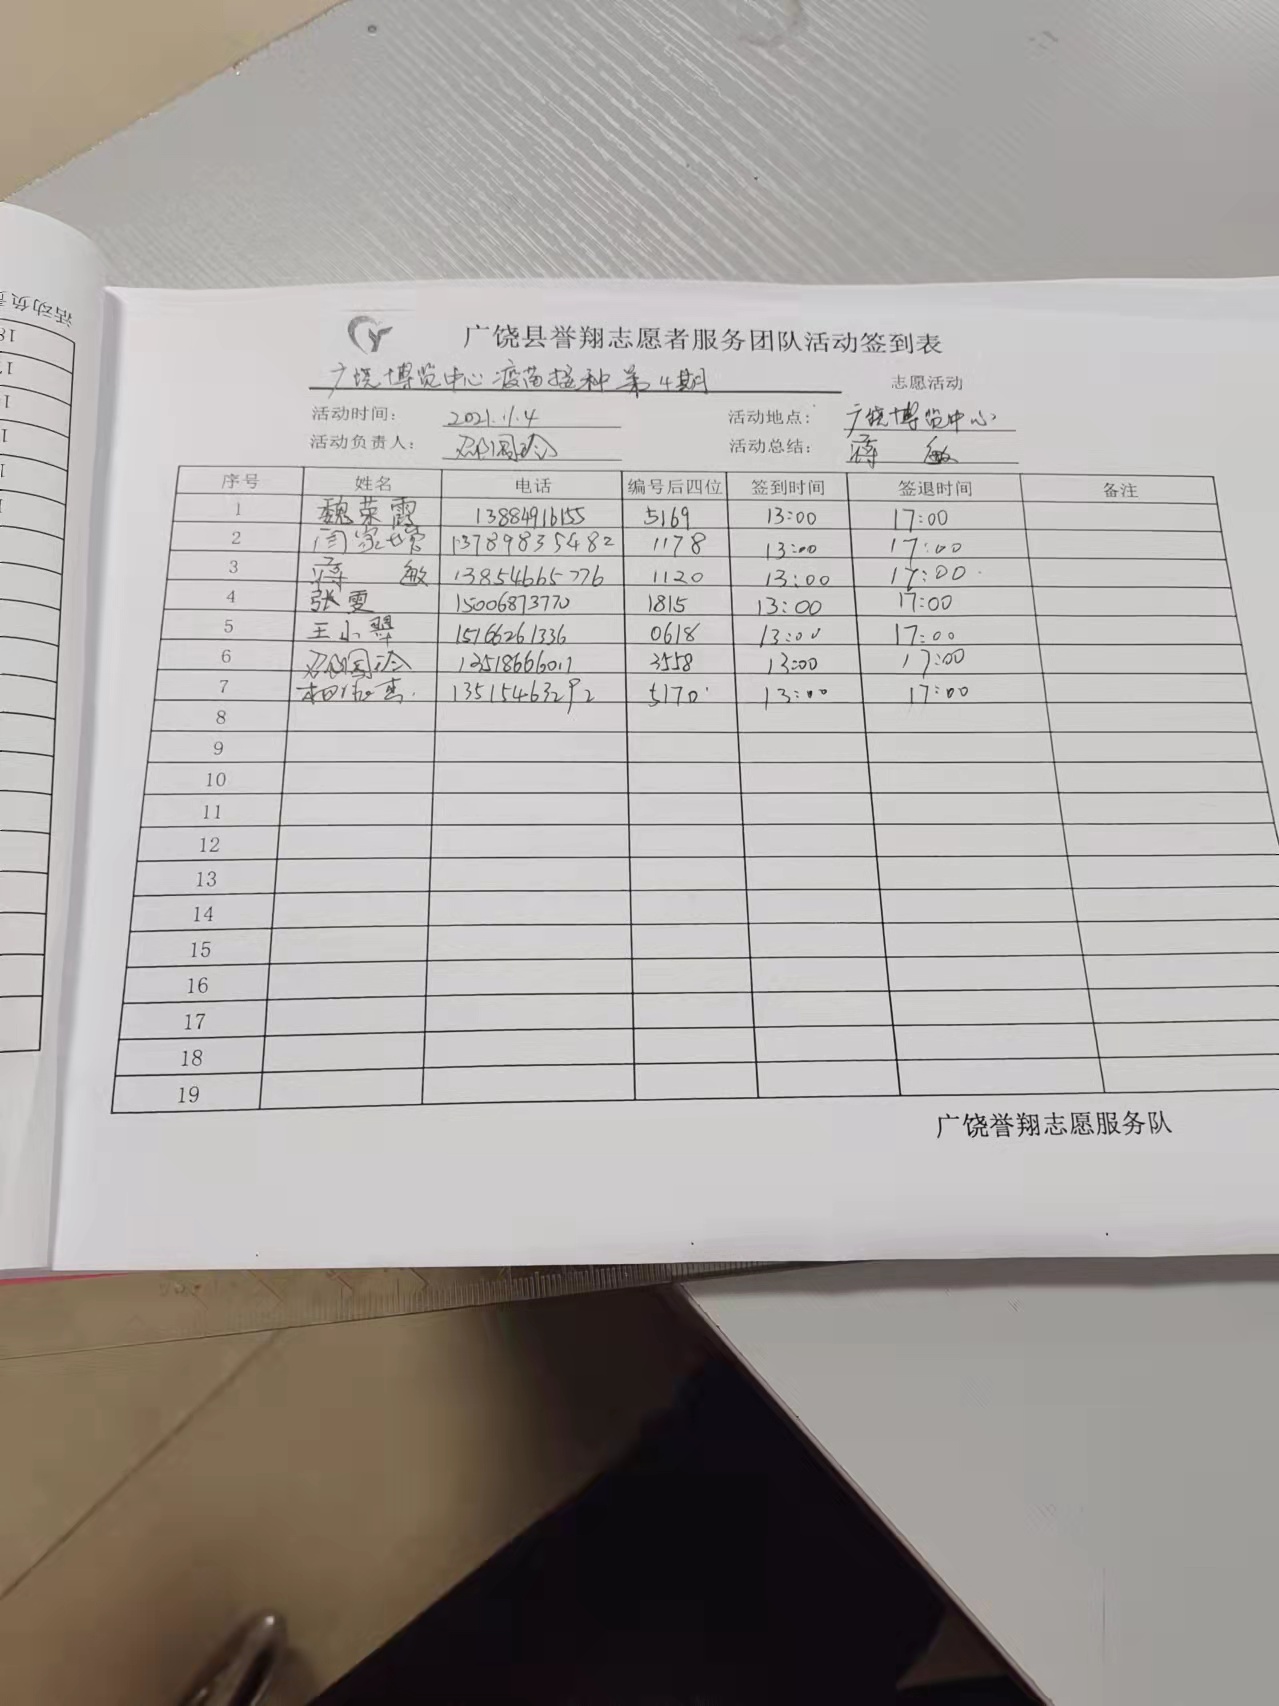 广饶县誉翔志愿者服务团队活动签到表
广饶博览中心疫苗接种第4期 志愿活动
活动时间: 2021.11.4 活动地点: 广饶博览中心
活动负责人: 活动总结: 蒋敏
序号 姓名 电话 编号后四位 签到时间 签退时间 备注
1 魏荣霞 13884916155 5169 13:00 17:00
2 闫家 13789835482 1178 13:00 17:00
3 蒋敏 13854665776 1120 13:00 17:00
4 张雯 15006873770 1815 13:00 17:00
5 王小翠 15766261336 0618 13:00 17:00
6 13518666011 3558 13:00 17:00
7 13515463292 5170 13:00 17:00
8
9
10
11
12
13
14
15
16
17
18
19
广饶誉翔志愿服务队